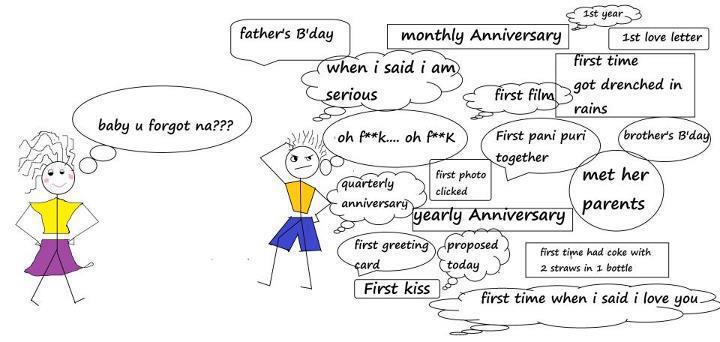 baby u forgot na???
father's B'day
monthly Anniversary
1st year
1st love letter
when i said i am
serious
first film
first time
got drenched in
rains
oh f**k.... oh f**K
First pani puri
together
brother's B'day
quarterly
anniversary
first photo
clicked
met her
parents
yearly Anniversary
first greeting
card
proposed
today
first time had coke with
2 straws in 1 bottle
First kiss
first time when i said i love you